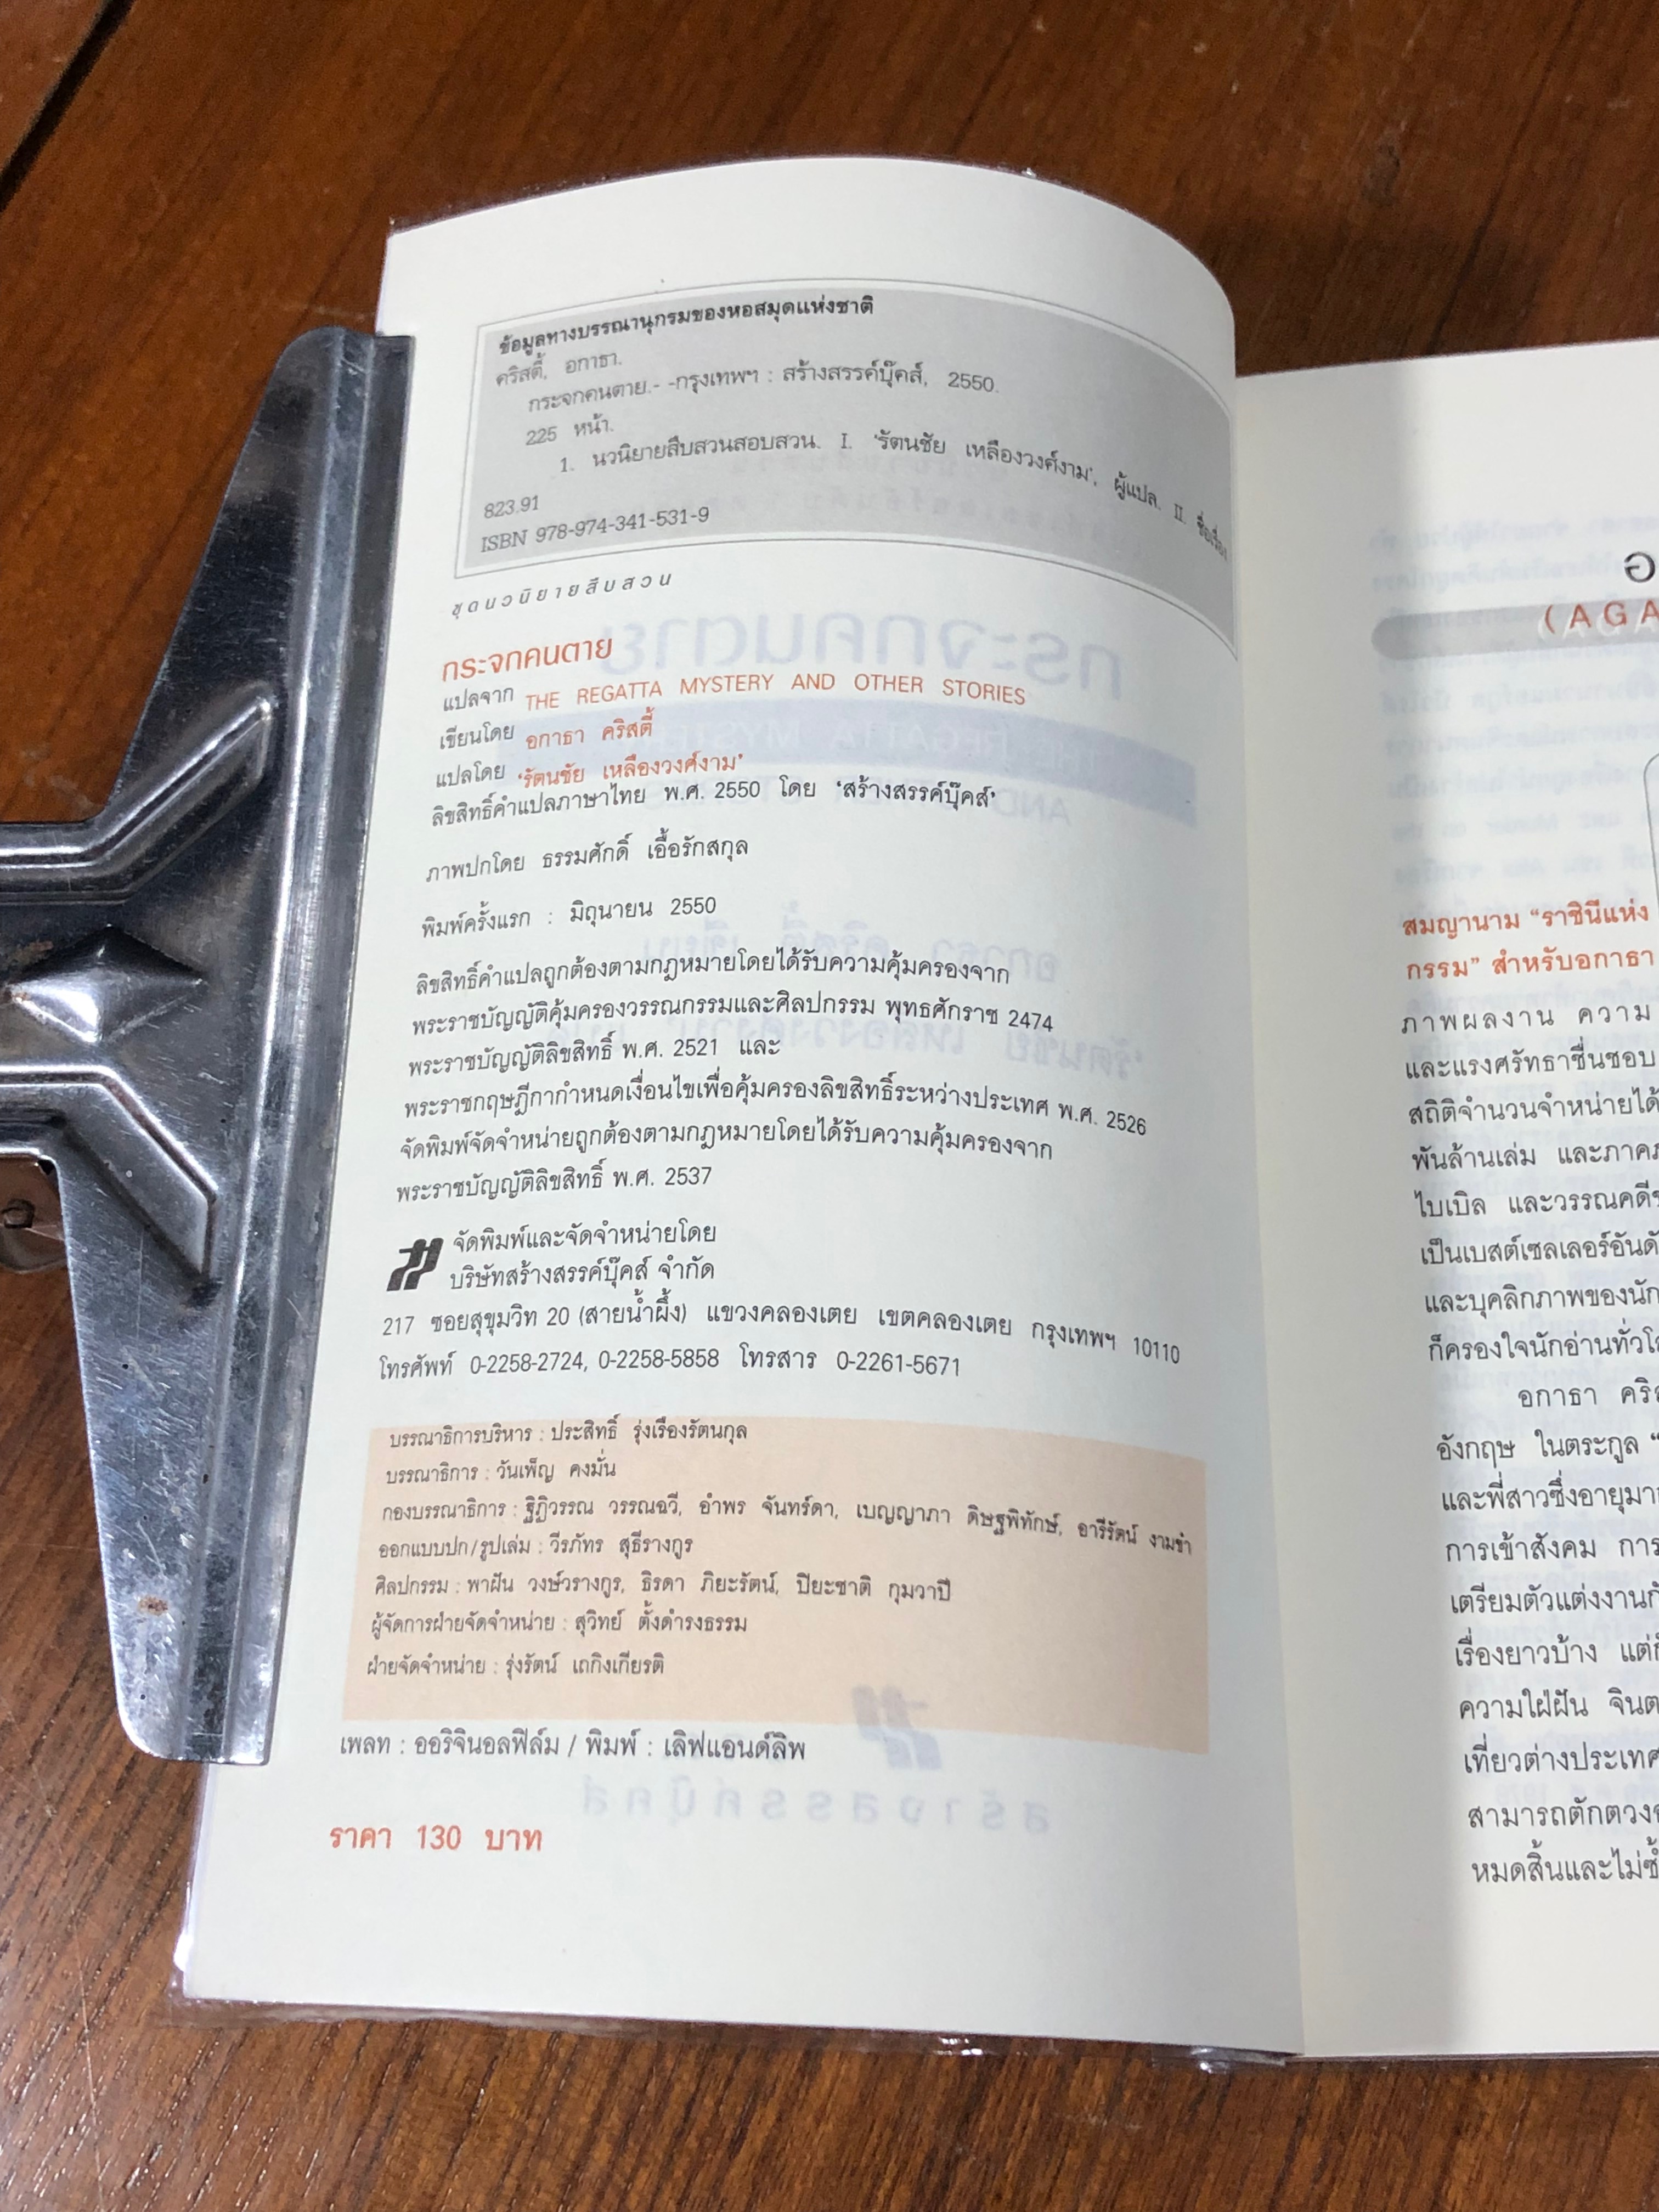 ข้อมูลทางบรรณานุกรมของหอสมุดแห่งชาติ
คริสตี้, อกาธา.
กระจกคนตาย.- -กรุงเทพฯ : สร้างสรรค์บุ๊คส์, 2550.
225 หน้า.
1. นวนิยายสืบสวนสอบสวน. I. 'รัตนชัย เหลืองวงศ์งาม', ผู้แปล. II. ชื่อเรื่อง
823.91
ISBN 978-974-341-531-9
ชุดนวนิยายสืบสวน
กระจกคนตาย
แปลจาก THE REGATTA MYSTERY AND OTHER STORIES
เขียนโดย อกาธา คริสตี้
แปลโดย 'รัตนชัย เหลืองวงศ์งาม'
ลิขสิทธิ์คำแปลภาษาไทย พ.ศ. 2550 โดย 'สร้างสรรค์บุ๊คส์'
ภาพปกโดย ธรรมศักดิ์ เอื้อรักสกุล
พิมพ์ครั้งแรก : มิถุนายน 2550
ลิขสิทธิ์คำแปลถูกต้องตามกฎหมายโดยได้รับความคุ้มครองจาก
พระราชบัญญัติคุ้มครองวรรณกรรมและศิลปกรรม พุทธศักราช 2474
พระราชบัญญัติลิขสิทธิ์ พ.ศ. 2521 และ
พระราชกฤษฎีกากำหนดเงื่อนไขเพื่อคุ้มครองลิขสิทธิ์ระหว่างประเทศ พ.ศ. 2526
จัดพิมพ์จัดจำหน่ายถูกต้องตามกฎหมายโดยได้รับความคุ้มครองจาก
พระราชบัญญัติลิขสิทธิ์ พ.ศ. 2537
จัดพิมพ์และจัดจำหน่ายโดย
บริษัทสร้างสรรค์บุ๊คส์ จำกัด
217 ซอยสุขุมวิท 20 (สายน้ำผึ้ง) แขวงคลองเตย เขตคลองเตย กรุงเทพฯ 10110
โทรศัพท์ 0-2258-2724, 0-2258-5858 โทรสาร 0-2261-5671
บรรณาธิการบริหาร : ประสิทธิ์ รุ่งเรืองรัตนกุล
บรรณาธิการ : วันเพ็ญ คงมั่น
กองบรรณาธิการ : ฐิฏิวรรณ วรรณฉวี, อำพร จันทร์ดา, เบญญาภา ดิษฐพิทักษ์, อารีรัตน์ งามขำ
ออกแบบปก/รูปเล่ม : วีรภัทร สุธีรางกูร
ศิลปกรรม : พาฝัน วงษ์วรางกูร, ธิรดา ภิยะรัตน์, ปิยะชาติ กุมวาปี
ผู้จัดการฝ่ายจัดจำหน่าย : สุวิทย์ ตั้งดำรงธรรม
ฝ่ายจัดจำหน่าย : รุ่งรัตน์ เถกิงเกียรติ
เพลท : ออริจินอลฟิล์ม / พิมพ์ : เลิฟแอนด์ลิพ
ราคา 130 บาท
อ
(AGA
สมญานาม “ราชินีแห่ง
กรรม” สำหรับอกาธา
ภาพผลงาน ความ
และแรงศรัทธาชื่นชอบ
สถิติจำนวนจำหน่ายได้
พันล้านเล่ม และภาค
ไบเบิล และวรรณคดี
เป็นเบสต์เซลเลอร์อันดั
และบุคลิกภาพของนัก
ก็ครองใจนักอ่านทั่วโ
อกาธา คริส
อังกฤษ ในตระกูล “
และพี่สาวซึ่งอายุมา
การเข้าสังคม การ
เตรียมตัวแต่งงานกั
เรื่องยาวบ้าง แต่ก็
ความใฝ่ฝัน จินต
เที่ยวต่างประเทศ
สามารถตักตวง
หมดสิ้นและไม่ซ้ำ